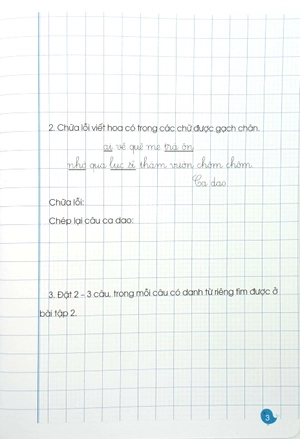 2. Chữa lỗi viết hoa có trong các chữ được gạch chân.
ai về quê mẹ trà ôn
nhớ qua lục sĩ thăm vườn chôm chôm.
Ca dao
Chữa lỗi:
Chép lại câu ca dao:
3. Đặt 2 – 3 câu, trong mỗi câu có danh từ riêng tìm được ở
bài tập 2.
3